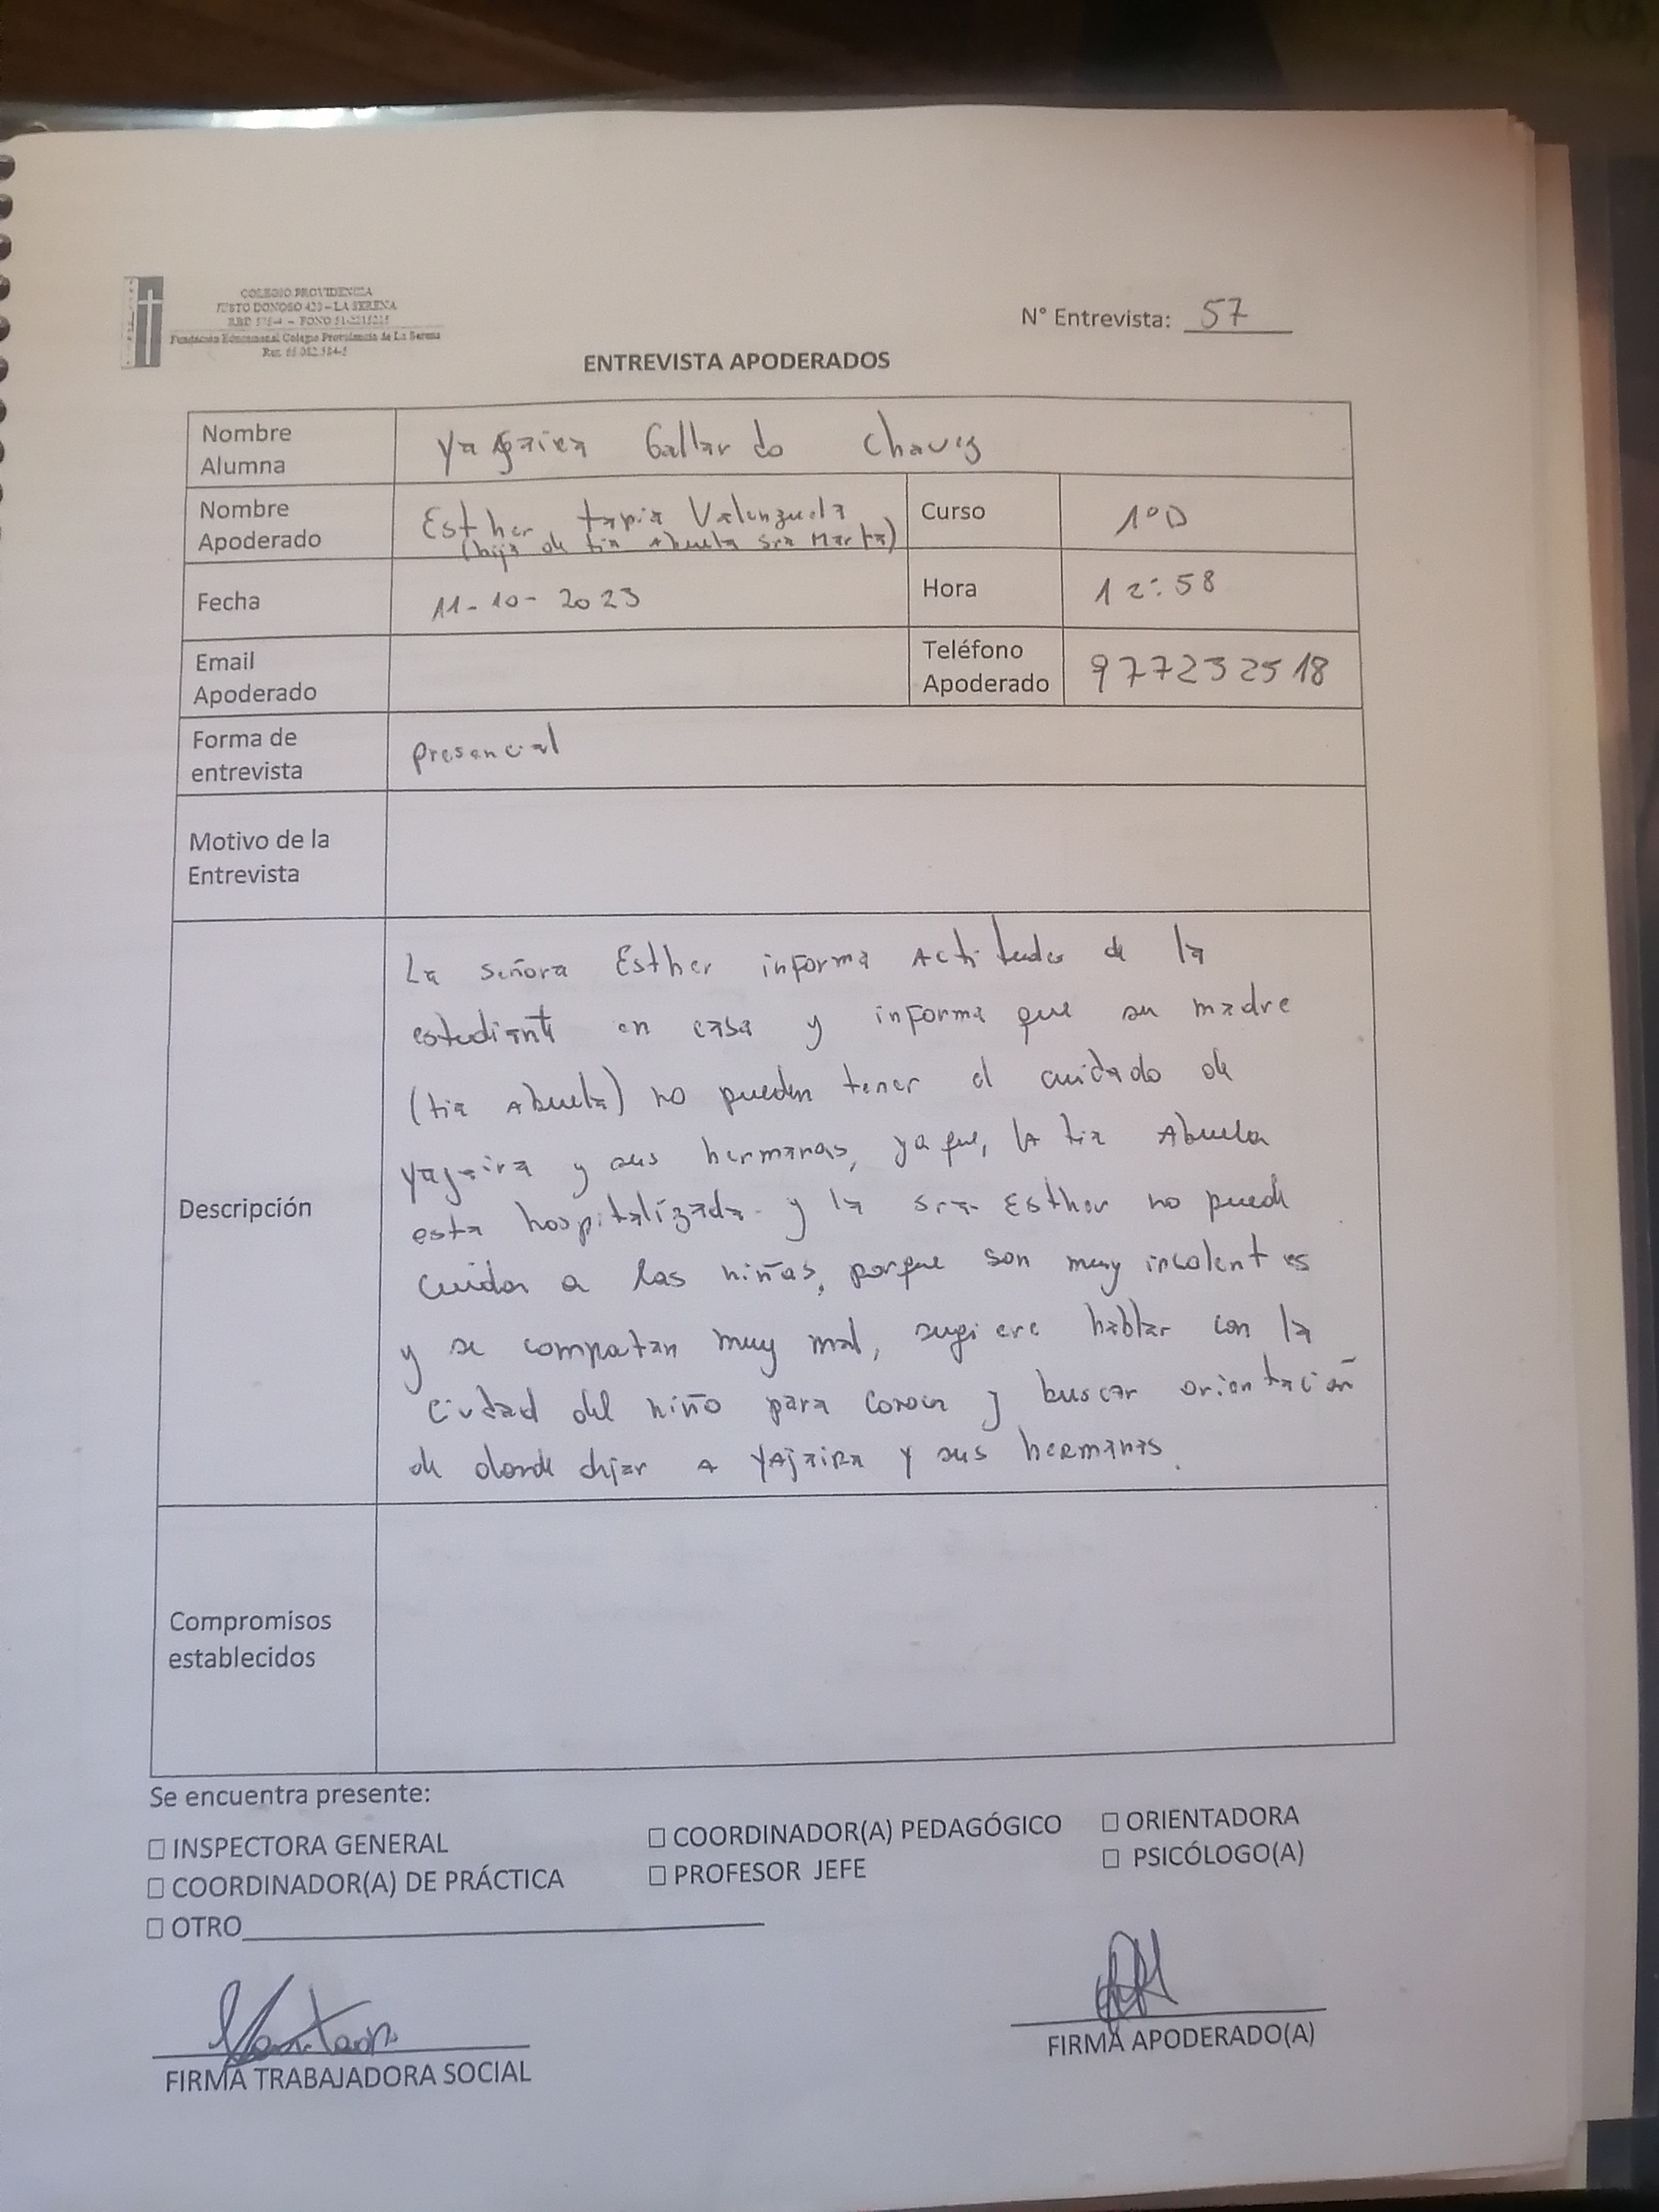 COLEGIO PROVIDENCIA
JUSTO DONOSO 420 – LA SERENA
Fundación Educacional Colegio Providencia de La Serena
N° Entrevista: 57
ENTREVISTA APODERADOS
Nombre Alumna Yajaira Gallardo Chavez
Nombre Apoderado Esther tapia Valenzuela
(hija de tia Abuela Sra Marta)
Curso 1°D
Fecha 11-10-2023 Hora 12:58
Email Apoderado
Teléfono Apoderado 977232518
Forma de entrevista presencial
Motivo de la Entrevista
Descripción
La señora Esther informa Actitudes de la
estudiante en casa y informa que su madre
(tia Abuela) no pueden tener el cuidado de
Yajaira y sus hermanas, ya que, la tia Abuela
esta hospitalizada y la sra Esther no puede
cuidar a las niñas, porque son muy insolentes
y se compotan muy mal, sugiere hablar con la
Ciudad del niño para conocer y buscar orientación
de donde dejar A YAjaira y sus hermanas.
Compromisos establecidos
Se encuentra presente:
☐ INSPECTORA GENERAL ☐ COORDINADOR(A) PEDAGÓGICO ☐ ORIENTADORA
☐ COORDINADOR(A) DE PRÁCTICA ☐ PROFESOR JEFE ☐ PSICÓLOGO(A)
☐ OTRO
FIRMA TRABAJADORA SOCIAL
FIRMA APODERADO(A)